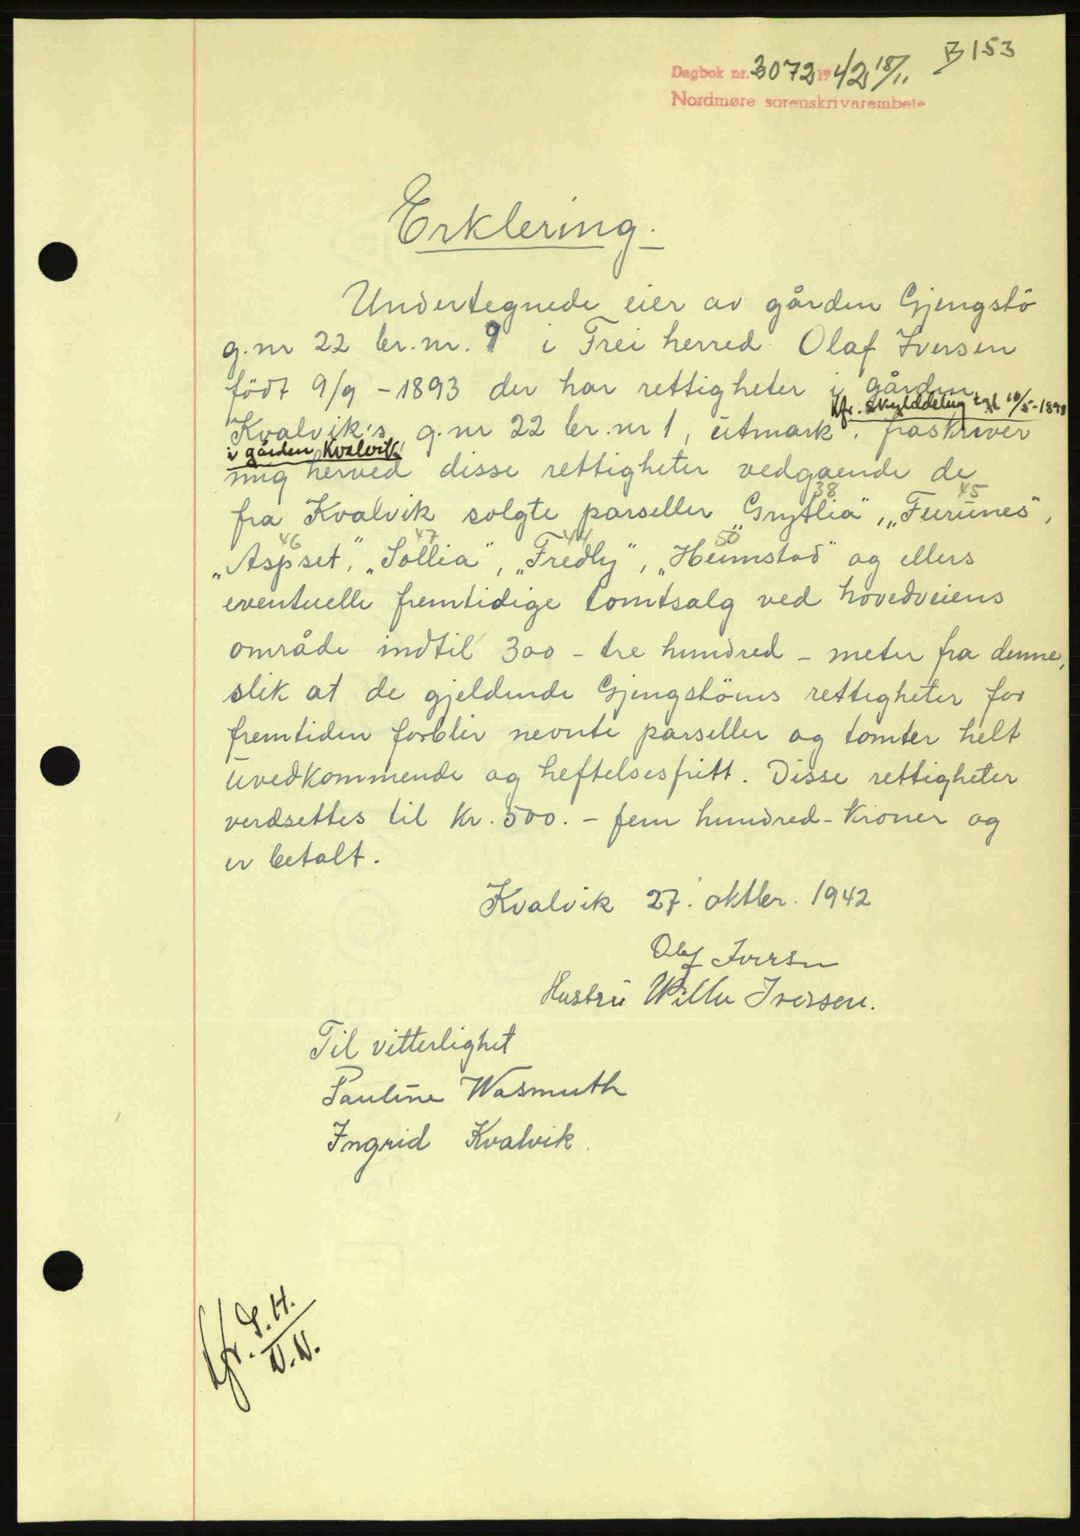 B 153
Dagbok nr. 3072 19 42 18/11
Nordmøre sorenskrivarembete
Erklering.
Undertegnede eier av gården Gjengstö
g.nr 22 br.nr. 9 i Frei herred Olaf Iversen
födt 9/9 - 1893 der har rettigheter i gården
kfr. skylddeling tgl 10/5-1898
Kvalvik's g.nr 22 br.nr 1, utmark, fraskriver
i gården Kvalvik
mig herved disse rettigheter vedgaende de
38 45
fra Kvalvik solgte parseller „Grytlia", „Furunes",
46 47 44 50
„Aspset", „Sollia", „Fredly", „Heimstad" og ellers
eventuelle fremtidige tomtsalg ved hovedveiens
område indtil 300 - tre hundred - meter fra denne,
slik at de gjeldende Gjengstöens rettigheter for
fremtiden forblir nevnte parseller og tomter helt
uvedkommende og heftelsesfritt. Disse rettigheter
verdsettes til kr. 500. - fem hundred - kroner og
er betalt.
Kvalvik 27. oktbr. 1942
Olaf Iversen
Hustru Willu Iversen.
Til vitterlighet
Pauline Wasmuth
Ingrid Kvalvik.
kfr. S.H.
N.N.